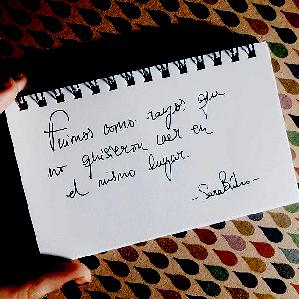 Fuimos como rayos que
no quisieron caer en
el mismo lugar.